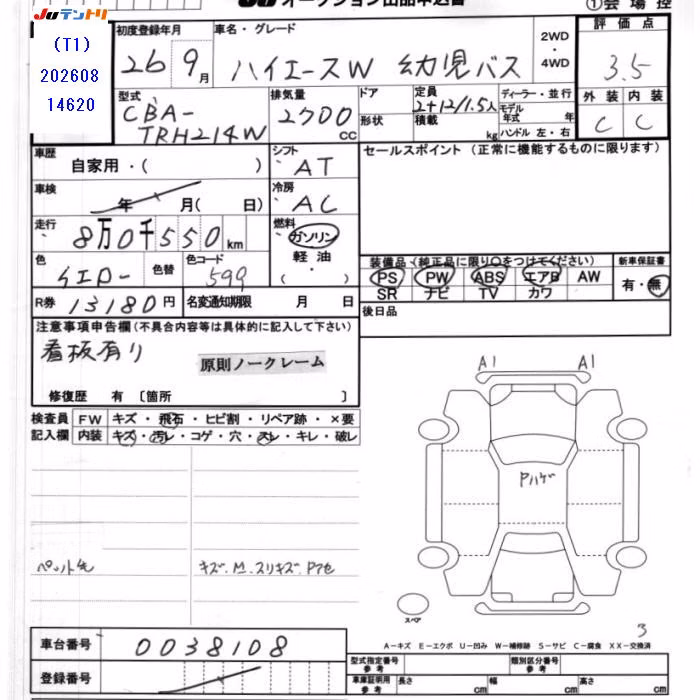 JUテントリ
オークション出品申込書
①会場控
(T1)
202608
14620
初度登録年月
26 9月
車名・グレード
ハイエースW 幼児バス
2WD
・
4WD
評価点
3.5
外装 内装
C C
型式
CBA-
TRH214W
排気量
2700
CC
ドア
形状
定員
2+12/1.5人
積載
kg
ディーラー・並行
モデル
年式 年
ハンドル 左・右
車歴
自家用・( )
シフト
AT
セールスポイント(正常に機能するものに限ります)
車検
年 月( 日)
冷房
AC
走行
8万0千550km
燃料
ガソリン
軽油
・
( )
色
イエロー
色替
色コード
599
装備品(純正品に限り○をつけてください)
新車保証書
PS PW ABS エアB AW
SR ナビ TV カワ
有・無
R券
13180円
名変通知期限 月 日
後日品
注意事項申告欄(不具合内容等は具体的に記入して下さい)
看板有り
原則ノークレーム
修復歴 有〔箇所 〕
検査員
記入欄
FW キズ・飛石・ヒビ割・リペア跡・×要
内装 キズ・汚レ・コゲ・穴・スレ・キレ・破レ
A1 A1
Pハゲ
キズ.M.スリキズ.P7色
スペア
3
A-キズ E-エクボ U-凹み W-補修跡 S-サビ C-腐食 XX-交換済
車台番号
0038108
登録番号
型式指定番号
参考
類別区分番号
参考
車庫証明用
参考
長さ cm 幅 cm 高さ cm